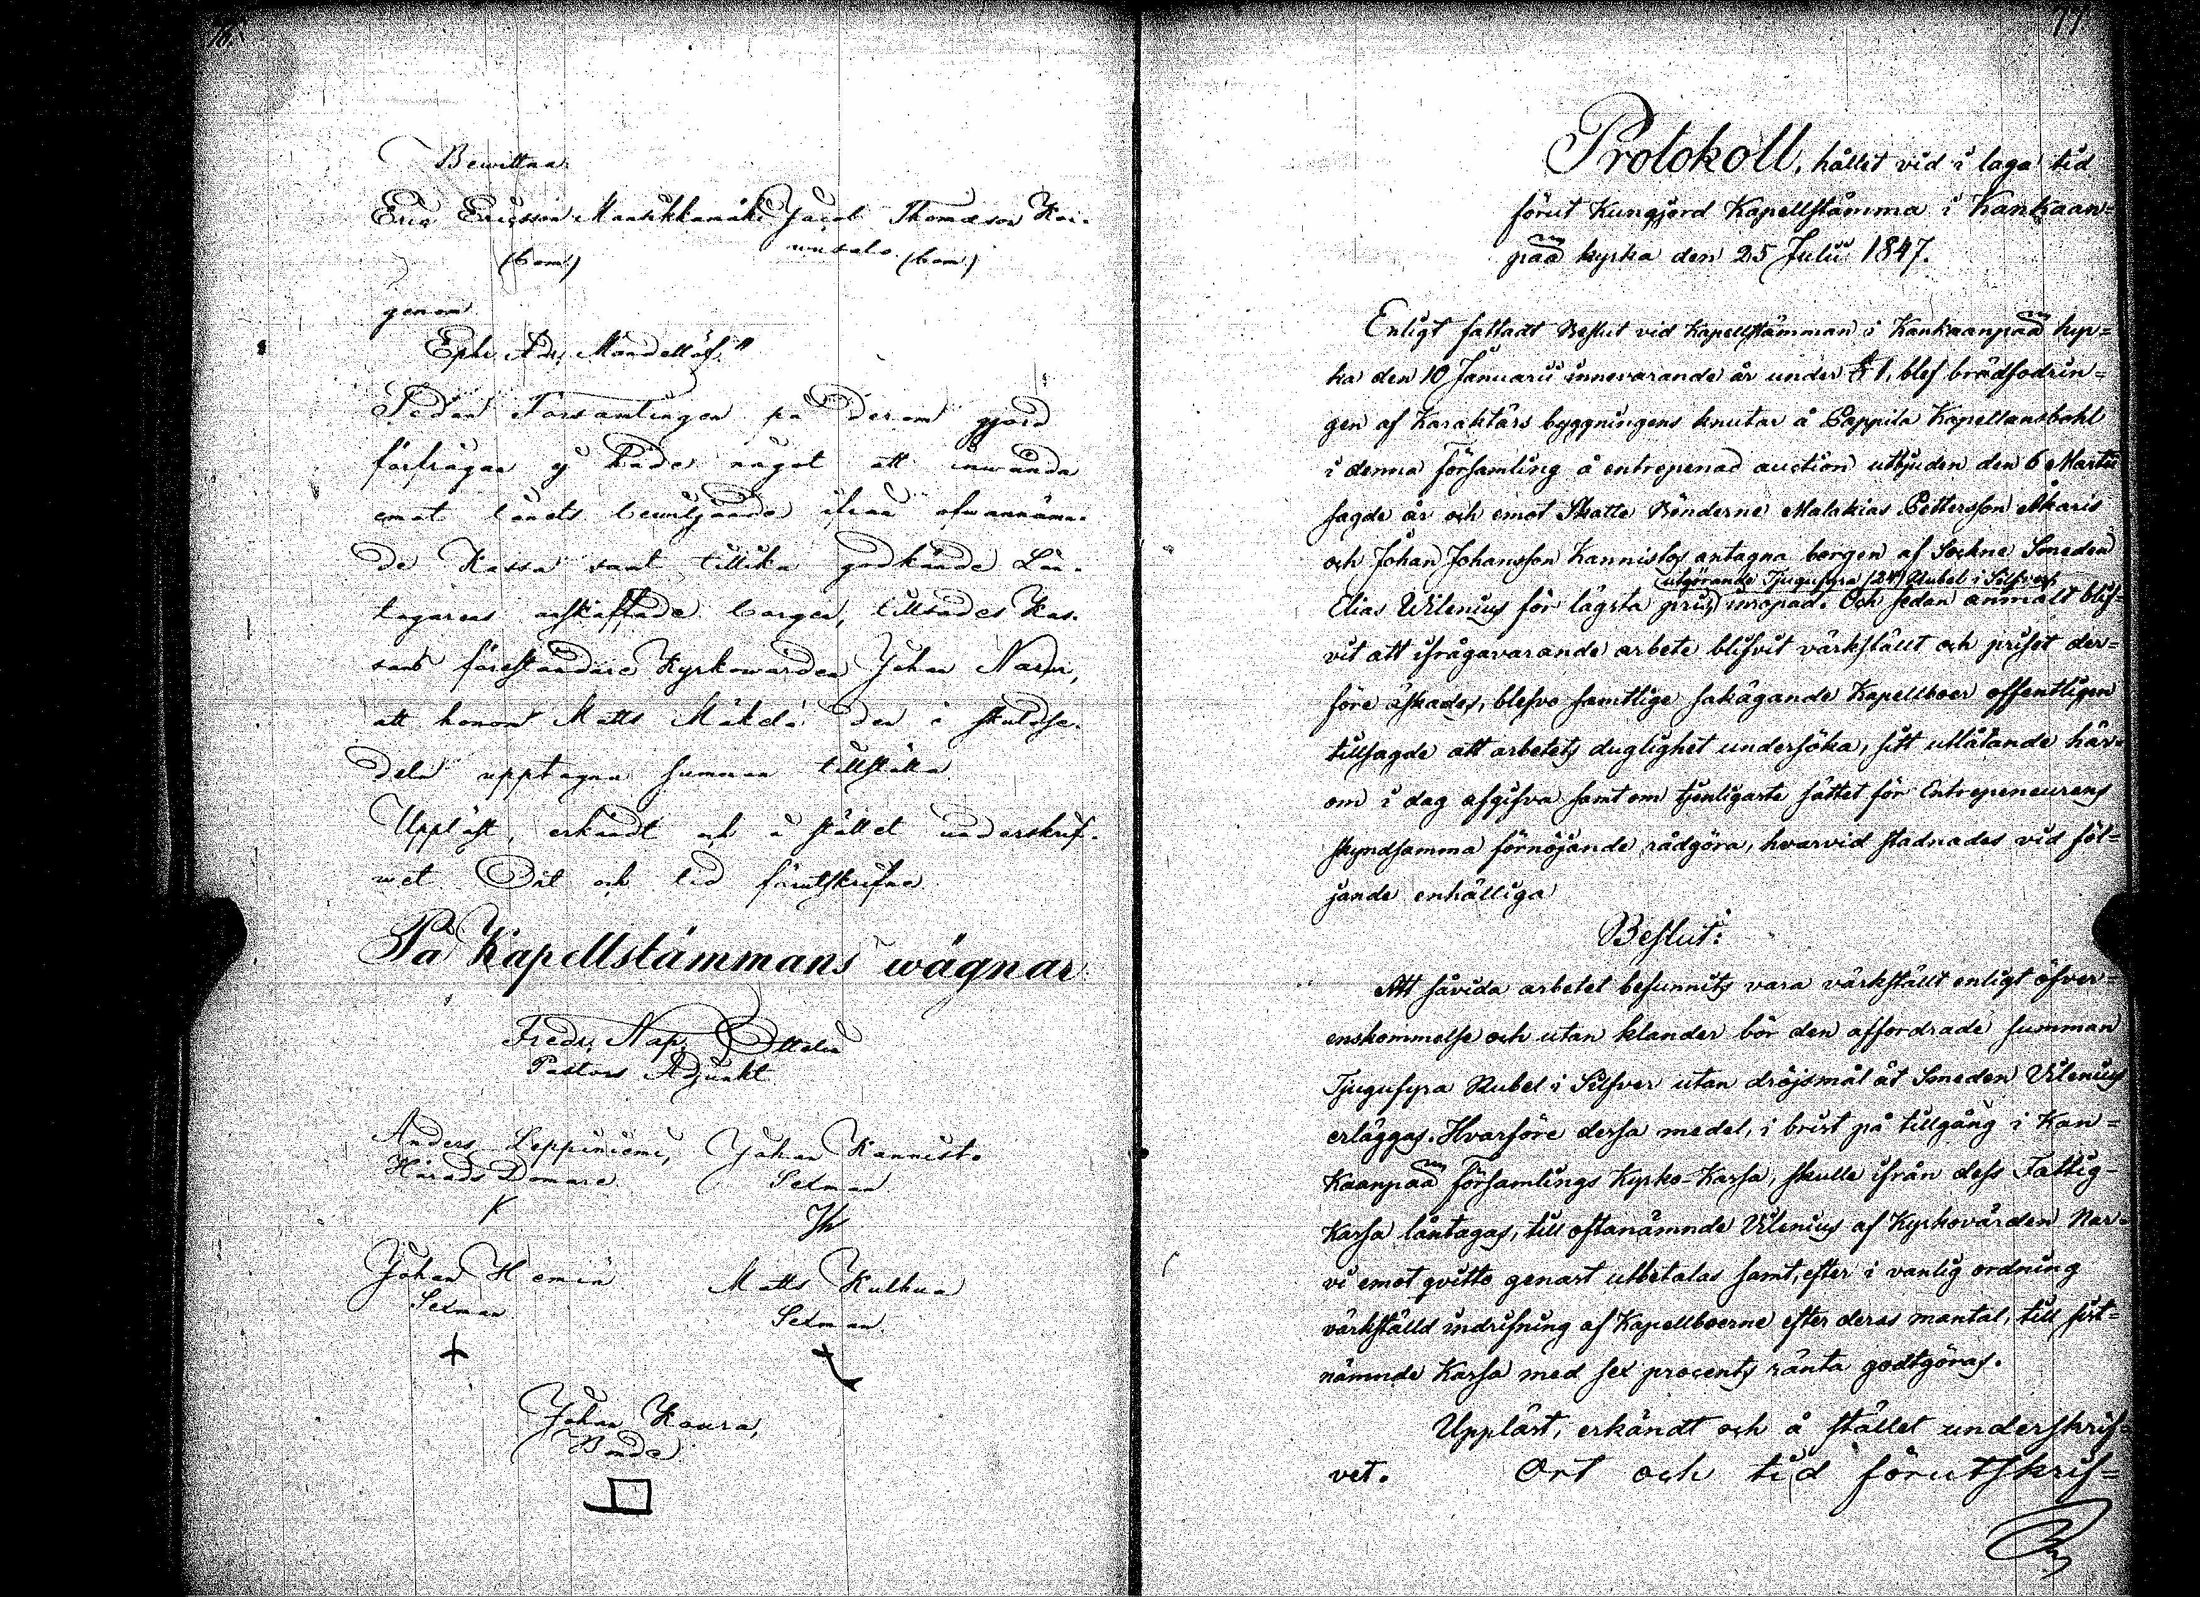 76.
Bewittna:
Eric Ericsson Mansikkamäki Jacob Thomasson Kai-
(bom.) (bom.)
genom
Eph: Ad: Mandellöf."
Sedan Församlingen på derom gjord
förfrågan ej hade något att inwända
emot lånets bewiljande ifrån ofwannämn-
de Kassa samt tillika godkände Lån-
tagarens anskaffade borgen, tillsades Kas-
sans föreståndare Kyrkowärden Johan Narvi,
att honom Matts Mäkelä den i skuldse-
deln upptagna summan tillställa
Uppläst, erkändt och å stället underskrif-
wet. Ort och tid förutskrifne
På Kapellstämmans wägnar
Fredr. Nap.
Pastors Adjunkt
Anders Leppiniemi, Johan Kannisto
Härads Domare. Sexman
Johan Hemin Matts Kulhua
Sexman Sexman
Johan Koura,
Bonde
77
Protokoll, hållit vid i laga tid
förut Kungjord Kapellstämma i Kankaan=
pää kyrka den 25 Julii 1847.
Enligt fattadt Beslut vid Kapellstämman i Kankaanpää kyr=
ka den 10 Januarii innevarande år under § 1, blef brädfodrin=
gen af Karaktärs byggningens knutar å Pappila Kapellansbohl
i denna församling å entrepenad auction utbjuden den 6 Martii
sagde år och emot Skatte Bönderne Malakias Pettersson Åkaris
och Johan Johansson Kannistos antagna borgen af Sockne Smeden
utgörande Tjugufyra (24) Rubel i Silfver
Elias Wilenius för lägsta pris, inropad. Och sedan anmält blif=
vit att ifrågavarande arbete blifvit värkställt och priset der=
före äskades, blefvo samtlige sakägande Kapellboer offentligen
tillsagde att arbetets duglighet undersöka, sitt utlåtande här=
om i dag afgifva samt om tjenligaste sättet för Entrepeneurens
skyndsamma förnöjande rådgöra, hvarvid stadnades vid föl=
jande enhälliga
Beslut:
Att såvida arbetet befunnits vara värkställt enligt öfver=
enskommelse och utan klander bör den affordrade summan
Tjugufyra Rubel i Silfver utan dröjsmål åt Smeden Vilenius
erläggas. Hvarföre dessa medel, i brist på tillgång i Kan=
kaanpää församlings Kyrko-Kassa, skulle ifrån dess Fattig-
Kassa låntagas, till oftanämnde Vilenius af Kyrkovärden Nar=
vi emot qvitto genast utbetalas samt, efter i vanlig ordning
värkställd indrifning af Kapellboerne efter deras mantal, till sist=
nämnde Kassa med sex procents ränta godtgöras.
Uppläst, erkändt och å stället underskrif=
vet. Ort och tid förutskrif=